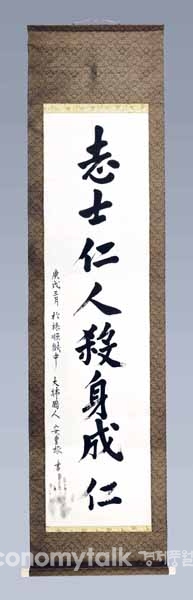 志士仁人殺身成仁
庚戌三月 於旅順獄中 大韓國人 安重根 書
conomytalk